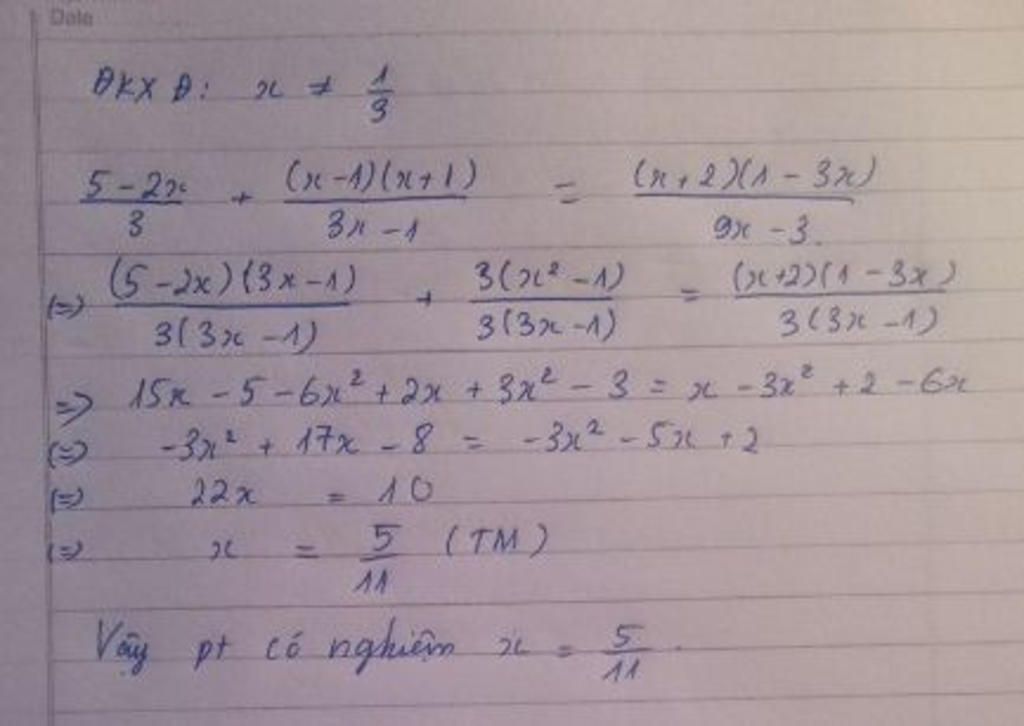 Date
ĐKXĐ: x ≠ 1/3
(5 - 2x)/3 + ((x - 1)(x + 1))/(3x - 1) = ((x + 2)(1 - 3x))/(9x - 3).
(=) ((5 - 2x)(3x - 1))/(3(3x - 1)) + (3(x² - 1))/(3(3x - 1)) = ((x + 2)(1 - 3x))/(3(3x - 1))
=> 15x - 5 - 6x² + 2x + 3x² - 3 = x - 3x² + 2 - 6x
(=) -3x² + 17x - 8 = -3x² - 5x + 2
(=) 22x = 10
(=) x = 5/11 (TM)
Vậy pt có nghiệm x = 5/11.